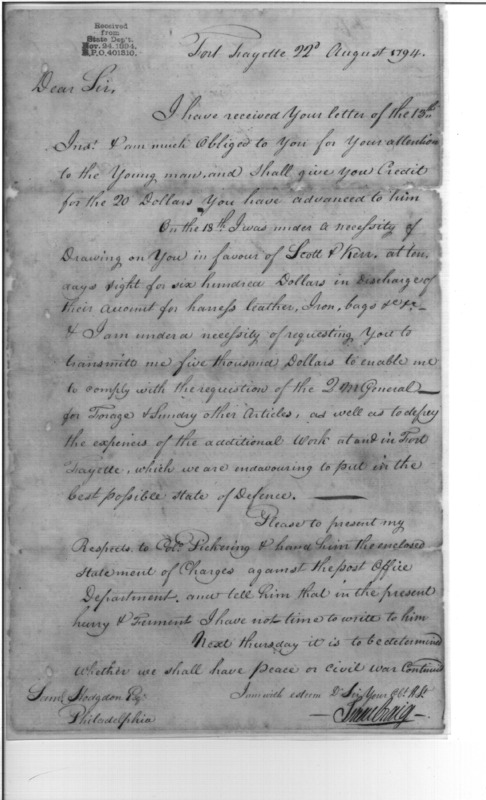 Received
from
State Dep't.
Nov. 24. 1894.
R.P.O. 401510.
Fort Fayette 22d August 1794.
Dear Sir,
I have received Your letter of the 13th
Inst. & am much Obliged to You for Your attention
to the Young man, and Shall give You Credit
for the 20 Dollars You have advanced to him
On the 13th I was under a necessity of
Drawing on You in favour of Scott & Kerr. at ten
days sight for six hundred Dollars in Discharge of
their Account for harness leather, Iron, bags &c &c
& I am under a necessity of requesting You to
transmitt me five thousand Dollars to enable me
to comply with the requestion of the Q M General
for Forage & Sundry other Articles, as well as to defray
the expences of the additional Work at and in Fort
Fayette, which we are endavouring to put in the
best possible state of Defence.
Please to present my
Respects to Col. Pickering & hand him the enclosed
statement of Charges against the post Office
Department. and tell him that in the present
hurry & Ferment I have not time to write to him
Next thursday it is to be determined
whether we shall have peace or civil war Continued
Saml Hodgdon Esqr I am with esteem D Sir Your Ob. H St
Philadelphia Isaac Craig